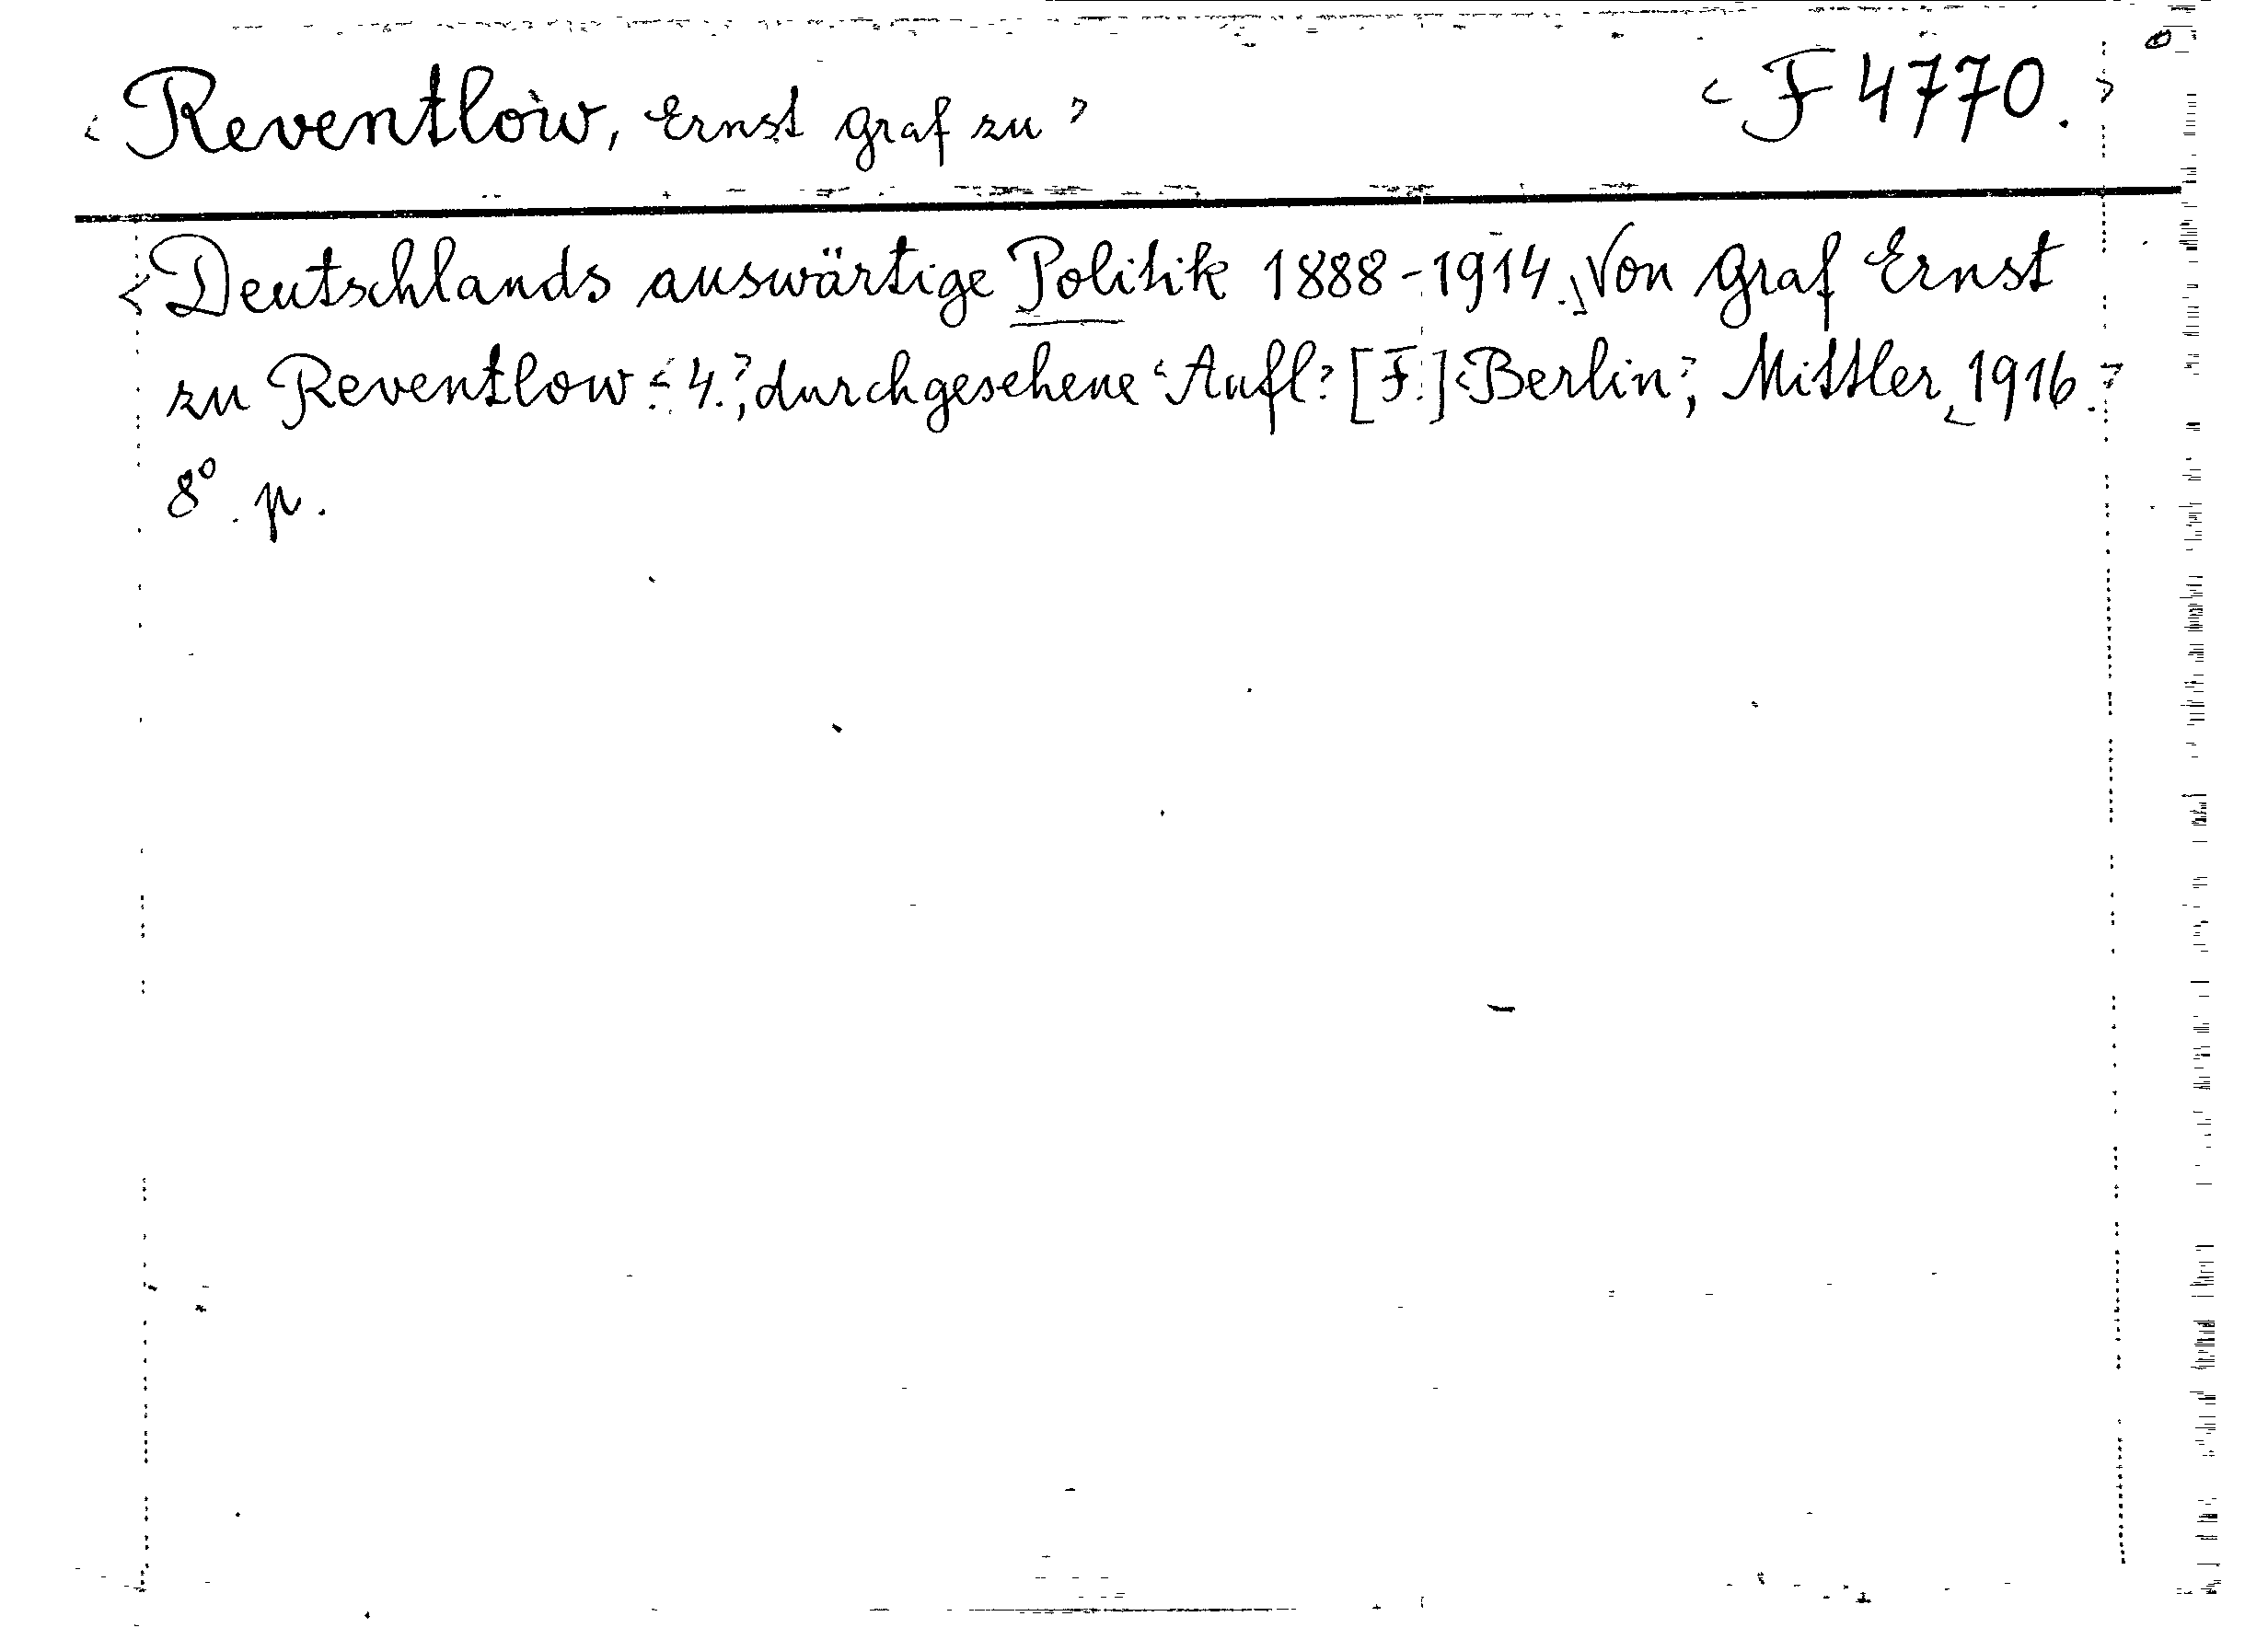 ‹Reventlow, Ernst Graf zu› ‹F 4770.›
‹Deutschlands auswärtige Politik 1888-1914.› Von Graf Ernst
zu Reventlow. ‹4.›, durchgesehene ‹Aufl.› [F.] ‹Berlin›, Mittler, ‹1916.›
8°. p.